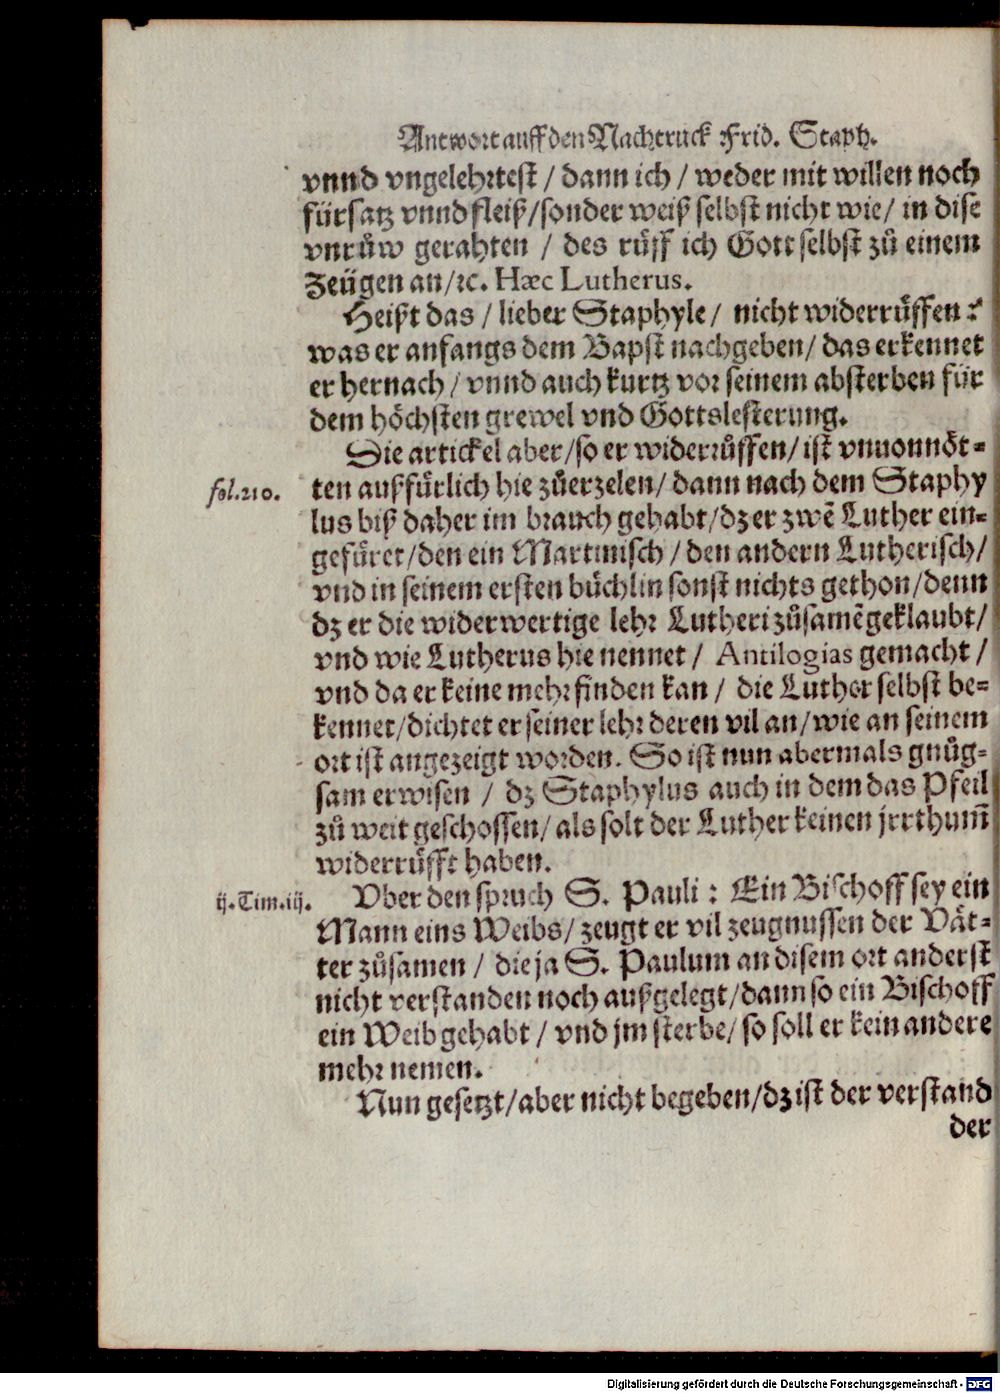 Antwort auff den Nachtruck Frid. Staph.
vnnd vngelehrtest / dann ich / weder mit willen noch
fürsatz vnnd fleiß / sonder weiß selbst nicht wie / in dise
vnrůw gerahten / des růff ich Gott selbst zů einem
Zeügen an / ꝛc. Hæc Lutherus.
Heißt das / lieber Staphyle / nicht widerrůffen?
was er anfangs dem Bapst nachgeben / das erkennet
er hernach / vnnd auch kurtz vor seinem absterben für
dem höchsten grewel vnd Gottslesterung.
Die artickel aber / so er widerrůffen / ist vnuonnöt-
fol. 210.
ten außfürlich hie zůerzelen / dann nach dem Staphy
lus biß daher im brauch gehabt / dz er zwē Luther ein-
gefüret / den ein Martinisch / den andern Lutherisch /
vnd in seinem ersten büchlin sonst nichts gethon / denn
dz er die widerwertige lehr Lutheri zůsamēgeklaubt /
vnd wie Lutherus hie nennet / Antilogias gemacht /
vnd da er keine mehr finden kan / die Luther selbst be-
kennet / dichtet er seiner lehr deren vil an / wie an seinem
ort ist angezeigt worden. So ist nun abermals gnůg-
sam erwisen / dz Staphylus auch in dem das Pfeil
zů weit geschossen / als solt der Luther keinen jrrthum̄
widerrůfft haben.
ij. Tim. iij.
Vber den spruch S. Pauli: Ein Bischoff sey ein
Mann eins Weibs / zeugt er vil zeugnussen der Vät-
ter zůsamen / die ja S. Paulum an disem ort anderst
nicht verstanden noch außgelegt / dann so ein Bischoff
ein Weib gehabt / vnd jm sterbe / so soll er kein andere
mehr nemen.
Nun gesetzt / aber nicht begeben / dz ist der verstand
der
Digitalisierung gefördert durch die Deutsche Forschungsgemeinschaft - DFG